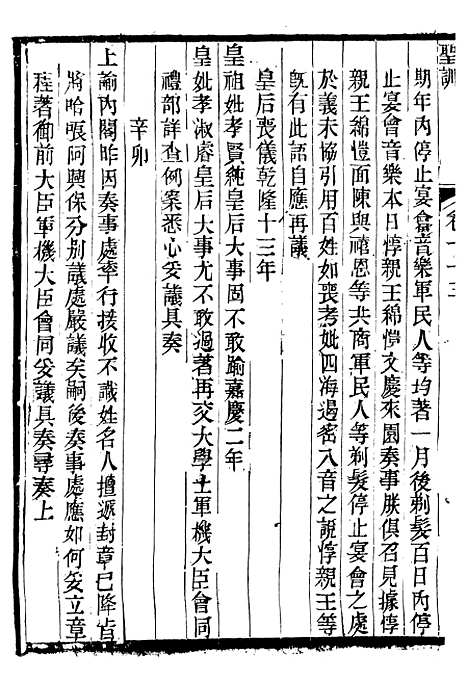 聖訓
卷一十三
期年內停止宴會音樂軍民人等均著一月後剃髮百日內停
止宴會音樂本日惇親王綿愷文慶來園奏事朕俱召見據惇
親王綿愷面陳與禧恩等共商軍民人等剃髮停止宴會之處
於義未協引用百姓如喪考妣四海遏密八音之說惇親王等
旣有此語自應再議
皇后喪儀乾隆十三年
皇祖妣孝賢純皇后大事固不敢踰嘉慶二年
皇妣孝淑睿皇后大事尤不敢過著再交大學士軍機大臣會同
禮部詳查例案悉心妥議具奏
辛卯
上諭內閣昨因奏事處率行接收不識姓名人擅遞封章已降旨
將哈豐阿興保分別議處嚴議矣嗣後奏事處應如何妥立章
程著御前大臣軍機大臣會同妥議具奏尋奏上